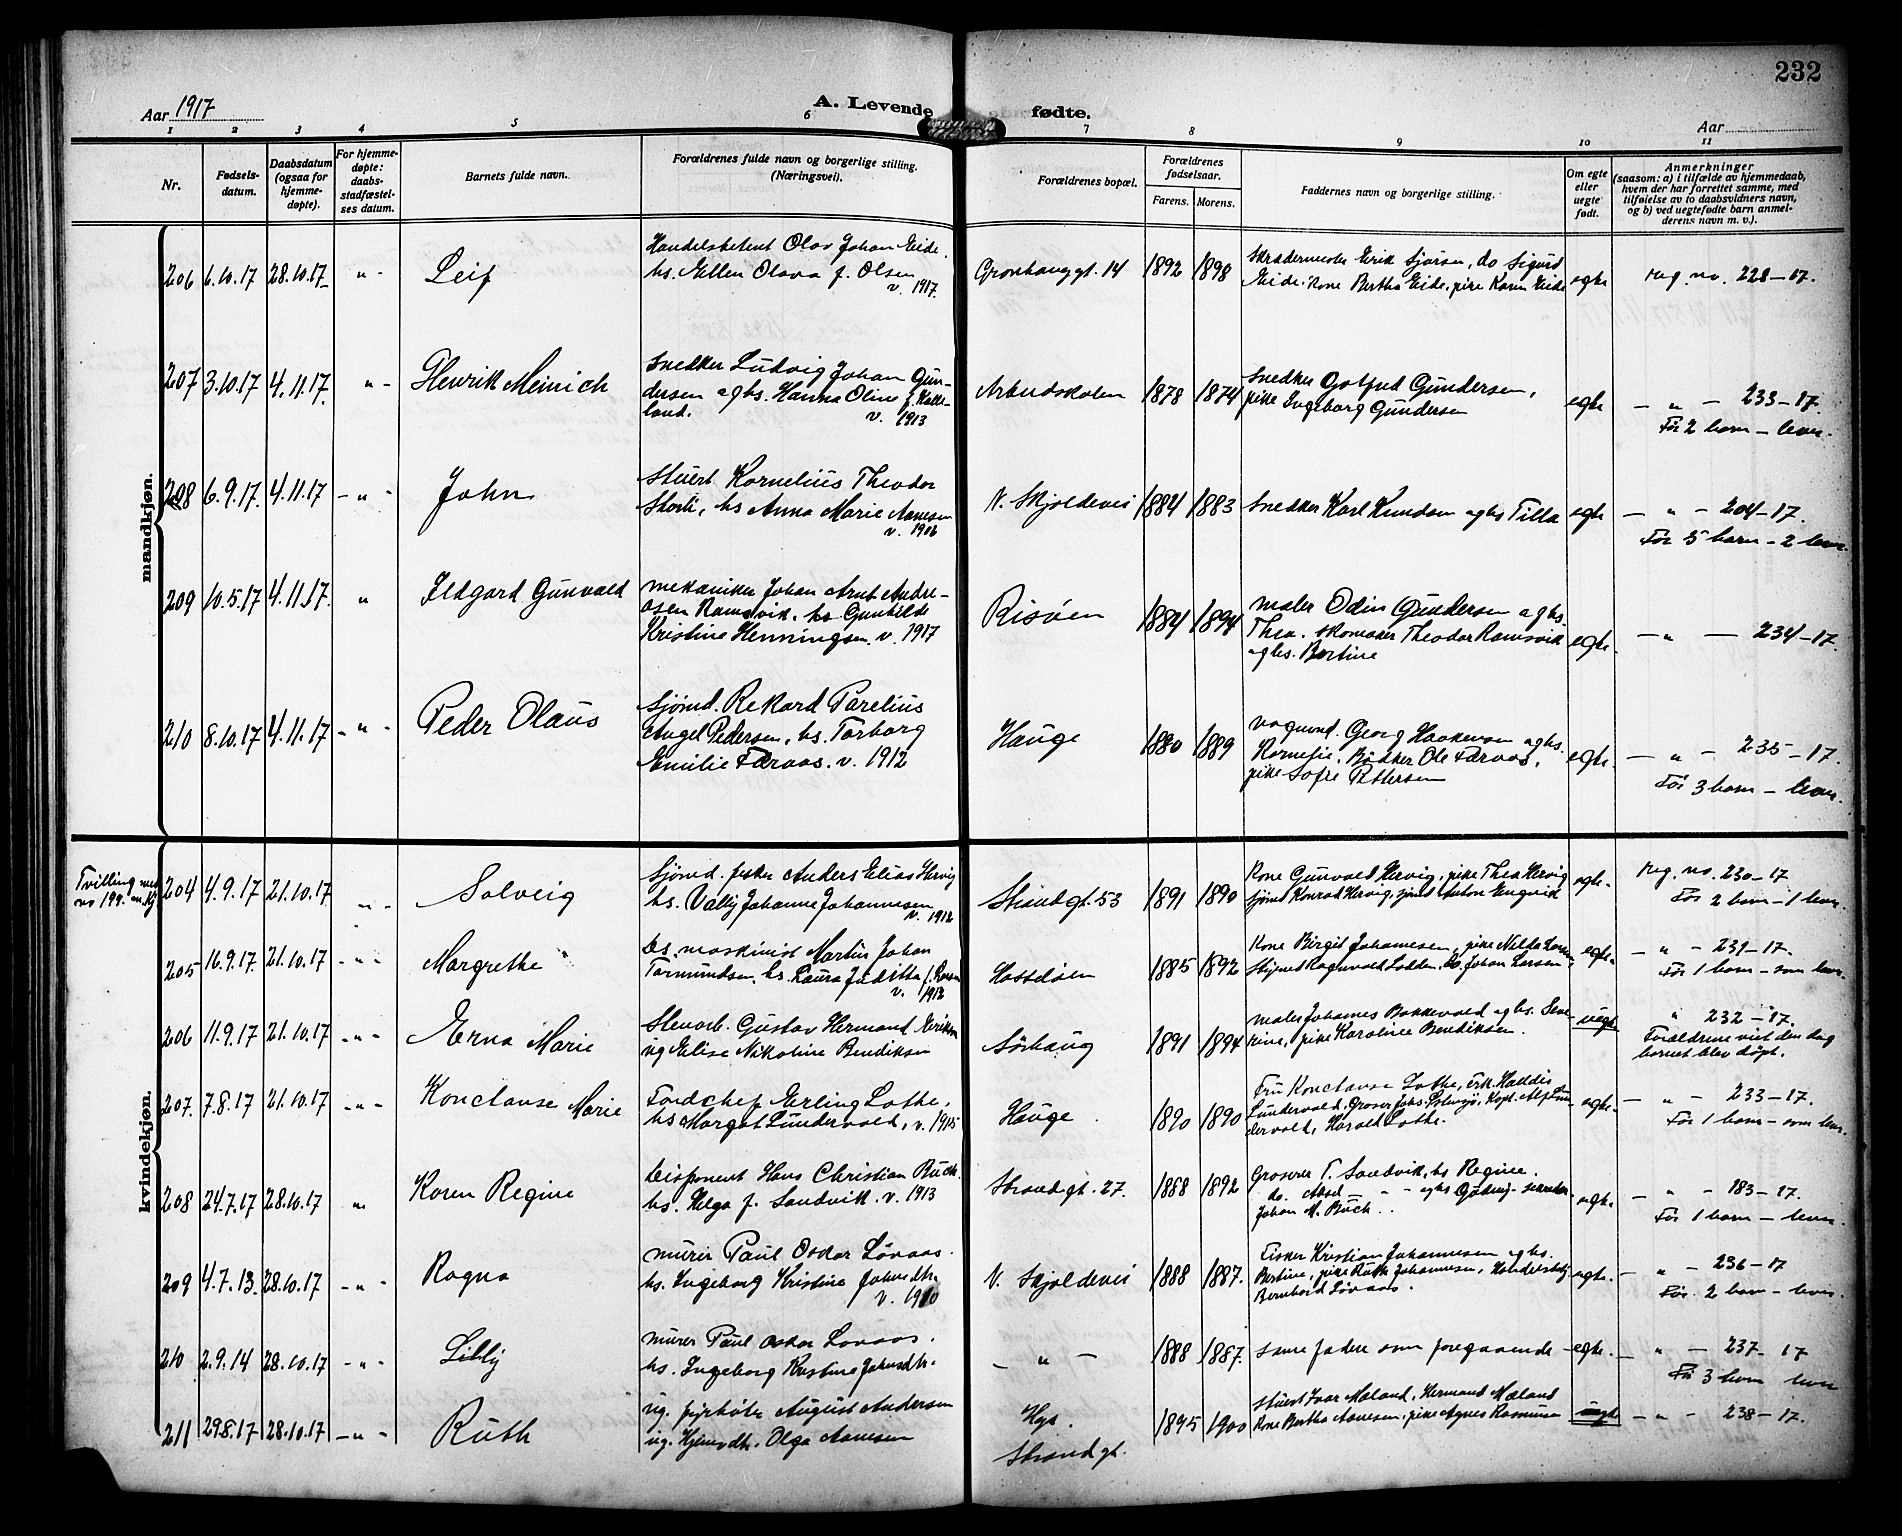 232
Aar 1917
A. Levende fødte.
Aar
1 2 3 4 5 6 7 8 9 10 11
Nr.
Fødsels-
datum.
Daabsdatum
(ogsaa for
hjemme-
døpte).
For hjemme-
døpte:
daabs-
stadfæstel-
ses datum.
Barnets fulde navn.
Forældrenes fulde navn og borgerlige stilling.
(Næringsvei).
Forældrenes bopæl.
Forældrenes
fødselsaar.
Farens. Morens.
Faddernes navn og borgerlige stilling.
Om egte
eller
uegte
født.
Anmerkninger
(saasom: a) i tilfælde av hjemmedaab,
hvem der har forrettet samme, med
tilføielse av to daabsvidners navn,
og b) ved uegtefødte barn anmel-
derens navn m. v.).
mandkjøn.
206 6.10.17 28.10.17 " Leif
Handelsbetjent Olav Johan Eide.
hs. Ellen Olava f. Olsen
v. 1917.
Gronhauggt. 14 1892 1898
Skrædermester Erik Sjørsen, do Sigurd
Eide. Kone Bertha Eide, pike Karen Eide
egte reg. no. 228-17.
207 3.10.17 4.11.17. " - Henrik Meinich
Snedker Ludvig Johan Gun-
dersen og hs. Hanna Oline f. Kalle-
land. v. 1913
Arbeidsskolen 1878 1874
Snedker Gotfred Gundersen,
pike Ingeborg Gundersen
egte - " - 233-17.
Før 2 barn - lever.
208 6.9.17. 4.11.17 - " - John
Stuert Kornelius Theodor
Stork, hs Anna Marie Aanesen
v. 1906
N. Skjoldevei 1884 1883
Snedker Karl Knudsen og hs Tilla
egte - " - 204-17.
Før 5 barn - 2 lever.
209 10.5.17 4.11.17. " Ildgard Gunvald
mekaniker Johan Arnt Andre-
asen Ramsvik. hs Gunhilde
Kristine Henningsen. v. 1917
Risøen 1884 1894
maler Odin Gundersen og hs.
Thea. Skomaker Theodor Ramsvik
og hs. Bertine
egte. - " - 234-17.
210 8.10.17 4.11.17 - " - Peder Olaus
Sjømd. Rekard Parelius
Angel Pedersen, hs. Torborg
Emilie Farvaas. v. 1912
Hauge 1880 1889
vognmd. Georg Haakensen og hs.
Kornelie. Bødker Ole Farvaas,
pike Sofie Pettersen
egte. - " - 235-17.
Før 3 barn - lever.
kvindekjøn.
Tvilling med
no 199.
204 4.9.17 21.10.17 " - Solveig
Sjømd. fisker Anders Elias Hervig
hs. Vally Johanne Johannesen
v. 1912
Strandgt. 53 1891 1890
Kone Gunvald Hervig, pike Thea Hervig
sjømd Konrad Hervig, sjmd Anton Engvid
egte. reg. no. 230-17
Før 2 barn - 1 lever.
205 16.9.17. 21.10.17 - " - Margrethe
ds. maskinist Martin Johan
Tormundsen, hs. Laura Juditha f. Larsen
v. 1912
Hasseløen 1885 1892
Kone Birgit Johannesen, pike Nilka Larsen,
Skjpmd Ragnvald Lodden, do. Johan Larsen
egte. - " - 231-17.
Før 1 barn - som lever.
206 11.9.17 21.10.17 - " - Erna Marie
Stenarb. Gustav Hermand Eriksen
ug Elise Nikoline Bendiksen
Sørhaug 1891 1894
maler Johannes Bakkevold og hs. Seve-
rine, pike Karoline Bendiksen.
uegte " 232-17.
Forældrene viet den dag
barnet blev døpt.
207. 7.8.17 21.10.17 - " - Konstanse Marie
Tordchef Erling Lothe,
hs Margot Lundervold, v. 1915
Hauge 1890 1890
Fru Konstanse Lothe, Frk. Haldis
Lundervold, Grosser Johs. Østensjø, Kapt. Alf Lun-
dervold, Harald Lothe.
egte. - " - 233-17.
Før 1 barn - som lever.
208 24.7.17 28.10.17 " Karen Regine
Disponent Hans Christian Buch.
hs. Helga f. Sandvik. v. 1913
Strandgt. 27. 1888 1892
Grosserer T. Sandvik, hs Regine.
do. Aksel - " - og hs
Johan M. Buch.
egte. - " - 183-17.
Før 1 barn - lever.
209 4.7.13. 28.10.17 - " - Ragna
murer Paul Oskar Løvaas.
hs. Ingeborg Kristine Johnsdtr.
v. 1910
N. Skjoldevei 1888 1887.
Fisker Kristian Johannesen og hs.
Bertine, pike Ruth Johannesen, Handelsbetj
Bernhard Løvaas.
egte. - " - 236-17
Før. 2 barn - lever.
210 2.9.14 28.10.17 - " - Lilly
murer Paul Oskar Lovaas.
hs. Ingeborg Kristine Johnsdtr.
- " - 1888 1887.
samme faddere som foregaaende
egte. - " - 237-17
Før 3 barn lever
211 29.8.17 28.10.17 - " - Ruth
ug. fyrbøter August Andersen
ug. Hjemvdtr. Olga Aanesen
Hgs.
Strandgt.
1895 1900
Stuert Ivar Mæland, Hermand Mæland
Kone Bertha Aanesen, pike Agnes Rasmussen
uegte - " - 238-17.